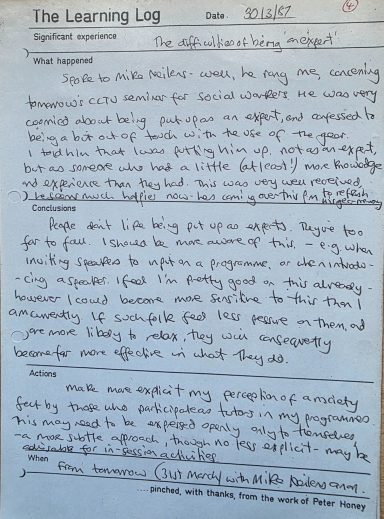 The Learning Log Date 30/3/87 4
Significant experience The difficulties of being 'an expert'
What happened
Spoke to Mike Neilens - well, he rang me, concerning
tomorrow's CCTV seminar for Social Workers. He was very
worried about being put up as an expert, and confessed to
being a bit out of touch with the use of the gear.
I told him that I was putting him up, not as an expert,
but as someone who had a little (at least!) more knowledge
and experience than they had. This was very well received,
he seems much happier now - he's coming over this pm to refresh
his gear-memory
Conclusions
People don't like being put up as experts. They've too
far to fall. I should be more aware of this, - e.g. when
inviting speakers to input on a programme, or when introdu-
-cing a speaker. I feel I'm pretty good on this already -
however I could become more sensitive to this than I
am currently. If such folk feel less pressure on them, and
are more likely to relax, they will consequently
become far more effective in what they do.
Actions
Make more explicit my perception of anxiety
felt by those who participate as tutors in my programmes
This may need to be expressed openly only to themselves
- a more subtle approach, though no less explicit - may be
advisable for in-session activities
When
From tomorrow (31st March) with Mike Neilens
....pinched, with thanks, from the work of Peter Honey